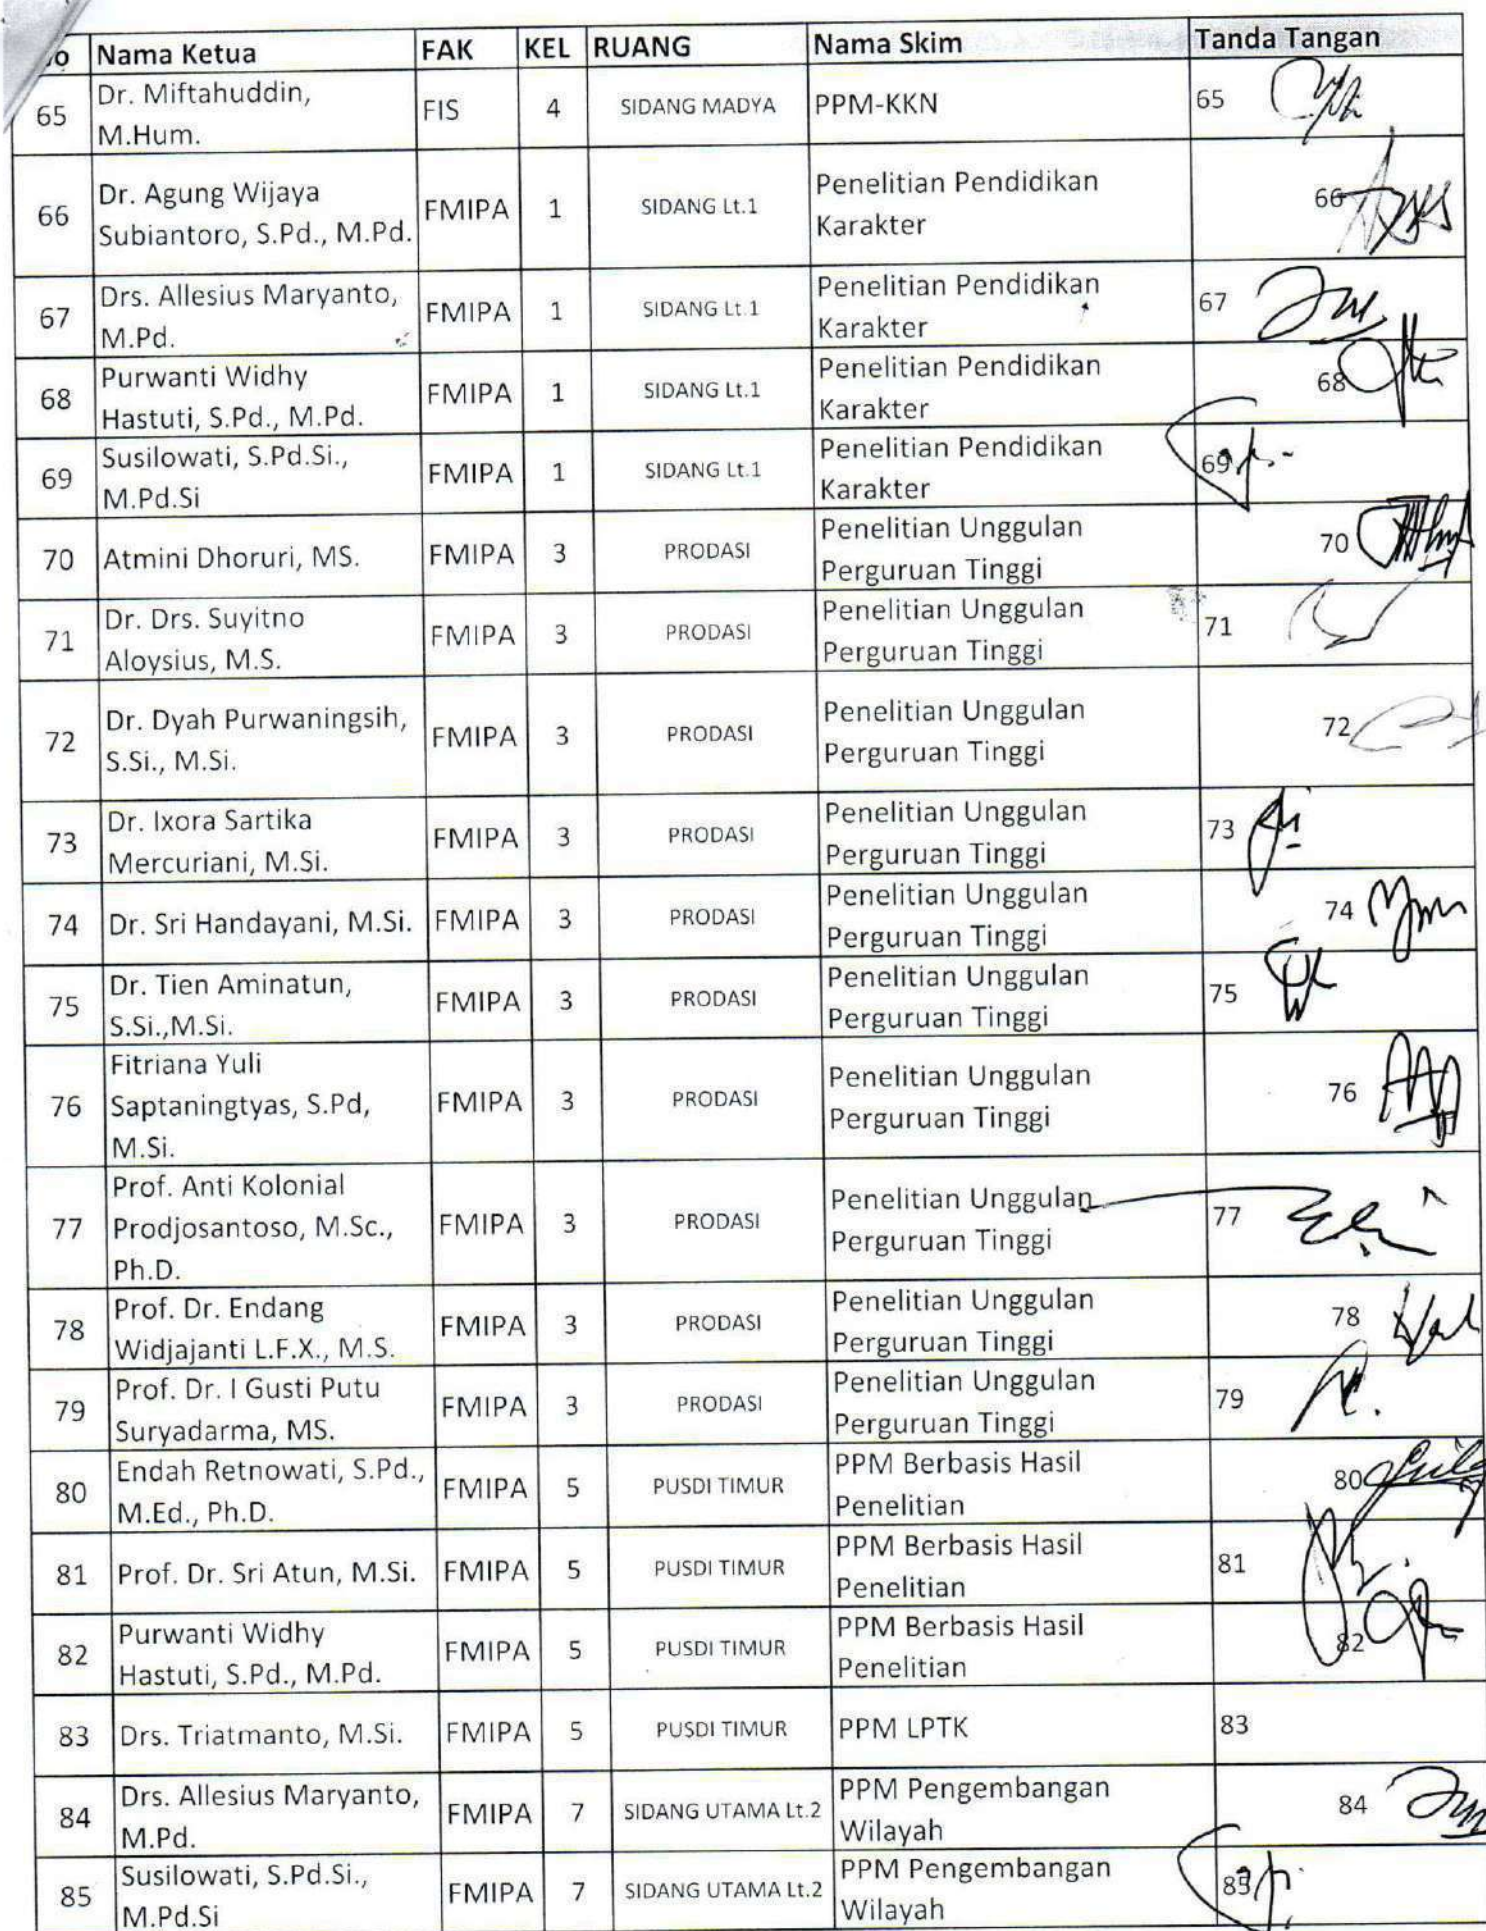 o Nama Ketua FAK KEL RUANG Nama Skim Tanda Tangan
65 Dr. Miftahuddin, M.Hum. FIS 4 SIDANG MADYA PPM-KKN 65
66 Dr. Agung Wijaya Subiantoro, S.Pd., M.Pd. FMIPA 1 SIDANG Lt.1 Penelitian Pendidikan Karakter 66
67 Drs. Allesius Maryanto, M.Pd. FMIPA 1 SIDANG Lt.1 Penelitian Pendidikan Karakter 67
68 Purwanti Widhy Hastuti, S.Pd., M.Pd. FMIPA 1 SIDANG Lt.1 Penelitian Pendidikan Karakter 68
69 Susilowati, S.Pd.Si., M.Pd.Si FMIPA 1 SIDANG Lt.1 Penelitian Pendidikan Karakter 69
70 Atmini Dhoruri, MS. FMIPA 3 PRODASI Penelitian Unggulan Perguruan Tinggi 70
71 Dr. Drs. Suyitno Aloysius, M.S. FMIPA 3 PRODASI Penelitian Unggulan Perguruan Tinggi 71
72 Dr. Dyah Purwaningsih, S.Si., M.Si. FMIPA 3 PRODASI Penelitian Unggulan Perguruan Tinggi 72
73 Dr. Ixora Sartika Mercuriani, M.Si. FMIPA 3 PRODASI Penelitian Unggulan Perguruan Tinggi 73
74 Dr. Sri Handayani, M.Si. FMIPA 3 PRODASI Penelitian Unggulan Perguruan Tinggi 74
75 Dr. Tien Aminatun, S.Si.,M.Si. FMIPA 3 PRODASI Penelitian Unggulan Perguruan Tinggi 75
76 Fitriana Yuli Saptaningtyas, S.Pd, M.Si. FMIPA 3 PRODASI Penelitian Unggulan Perguruan Tinggi 76
77 Prof. Anti Kolonial Prodjosantoso, M.Sc., Ph.D. FMIPA 3 PRODASI Penelitian Unggulan Perguruan Tinggi 77
78 Prof. Dr. Endang Widjajanti L.F.X., M.S. FMIPA 3 PRODASI Penelitian Unggulan Perguruan Tinggi 78
79 Prof. Dr. I Gusti Putu Suryadarma, MS. FMIPA 3 PRODASI Penelitian Unggulan Perguruan Tinggi 79
80 Endah Retnowati, S.Pd., M.Ed., Ph.D. FMIPA 5 PUSDI TIMUR PPM Berbasis Hasil Penelitian 80
81 Prof. Dr. Sri Atun, M.Si. FMIPA 5 PUSDI TIMUR PPM Berbasis Hasil Penelitian 81
82 Purwanti Widhy Hastuti, S.Pd., M.Pd. FMIPA 5 PUSDI TIMUR PPM Berbasis Hasil Penelitian 82
83 Drs. Triatmanto, M.Si. FMIPA 5 PUSDI TIMUR PPM LPTK 83
84 Drs. Allesius Maryanto, M.Pd. FMIPA 7 SIDANG UTAMA Lt.2 PPM Pengembangan Wilayah 84
85 Susilowati, S.Pd.Si., M.Pd.Si FMIPA 7 SIDANG UTAMA Lt.2 PPM Pengembangan Wilayah 85